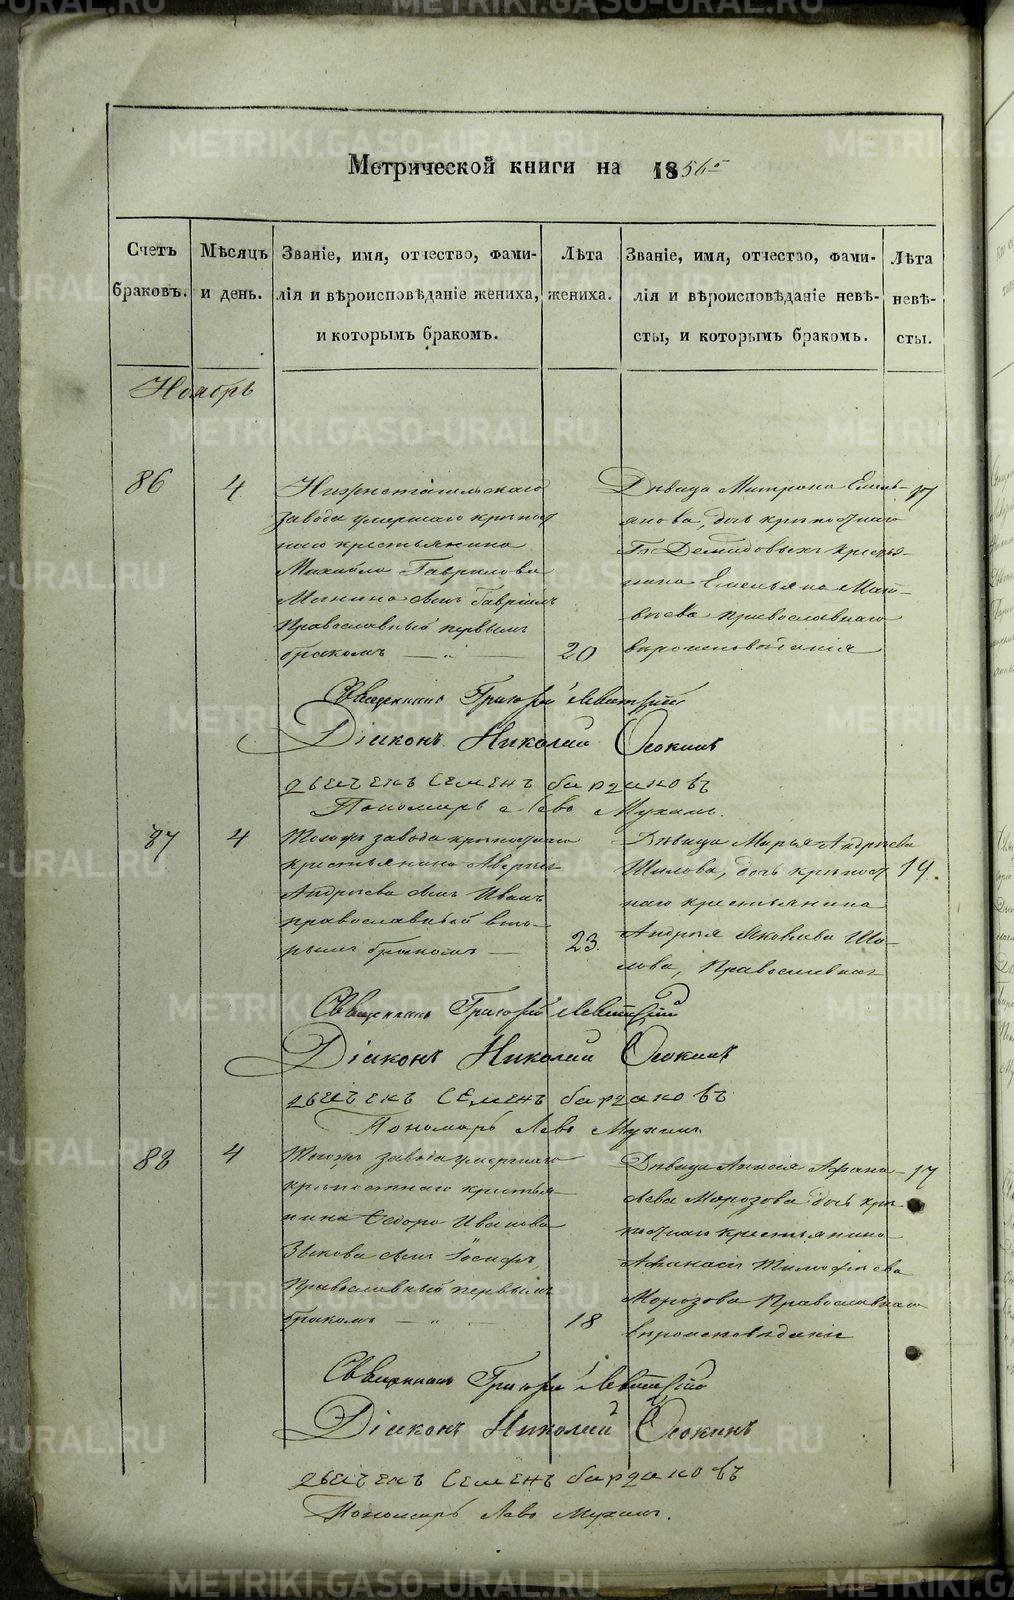 Метрической книги на 1856й
Счетъ браковъ.
Мѣсяцъ и день.
Званіе, имя, отчество, фами-
лія и вѣроисповѣданіе жениха,
и которымъ бракомъ.
Лѣта жениха.
Званіе, имя, отчество, фами-
лія и вѣроисповѣданіе невѣ-
сты, и которымъ бракомъ.
Лѣта невѣ-
сты.
Ноябрь
86
4
Нижнетагильскаго
завода умершаго крѣпост
наго крестьянина
Михайла Гаврилова
Минина сынъ Гавріилъ
Православный первымъ
бракомъ
20
Дѣвица Матрона Емель-
янова, дочь крѣпостнаго
Гг Демидовыхъ крестья
нина Емельяна Мат-
вѣева православнаго
вѣроисповѣданія
17
Священникъ Григорій Левитскій
Діаконъ Николай Осокинъ
дьячекъ Семенъ бардаковъ
Пономарь Левъ Мухинъ.
87
4
Тогожъ завода крѣпостнаго
крестьянина Аверкія
Андрѣева сынъ Иванъ
православный вто-
рымъ бракомъ
23.
Дѣвица Марья Андрѣева
Шилова, дочь крѣпост
наго крестьянина
Андрея Яковлева Ши-
лова, Православная
19.
Священникъ Григорій Левитскій
Діаконъ Николай Осокинъ
дьячекъ Семенъ бардаковъ
Пономарь Левъ Мухинъ
88
4
Тогожъ завода умершаго
крѣпостнаго крестья
нина Ѳедора Иванова
Зыкова сынъ Іосифъ,
Православный первымъ
бракомъ
18
Дѣвица Анисія Афана-
сьева Морозова дочь крѣ
постнаго крестьянина
Афанасія Тимофѣева
Морозова Православнаго
вѣроисповѣданія
17
Священникъ Григорій Левитскій
Діаконъ Николай Осокинъ
дьячекъ Семенъ бардаковъ
Пономарь Левъ Мухинъ.
METRIKI.GASO-URAL.RU